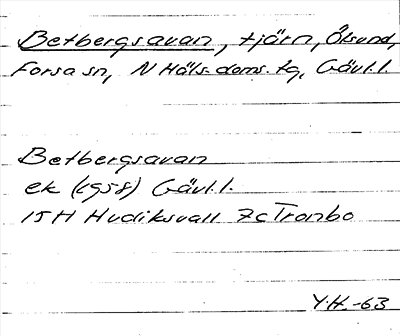 Betbergsavan, tjärn, Ölsund,
Forsa sn, N Häls. doms. tg, Gävl.l.
Betbergsavan
ek (1958) Gävl.l.
15H Hudiksvall 7c Tranbo
Y.H.-63